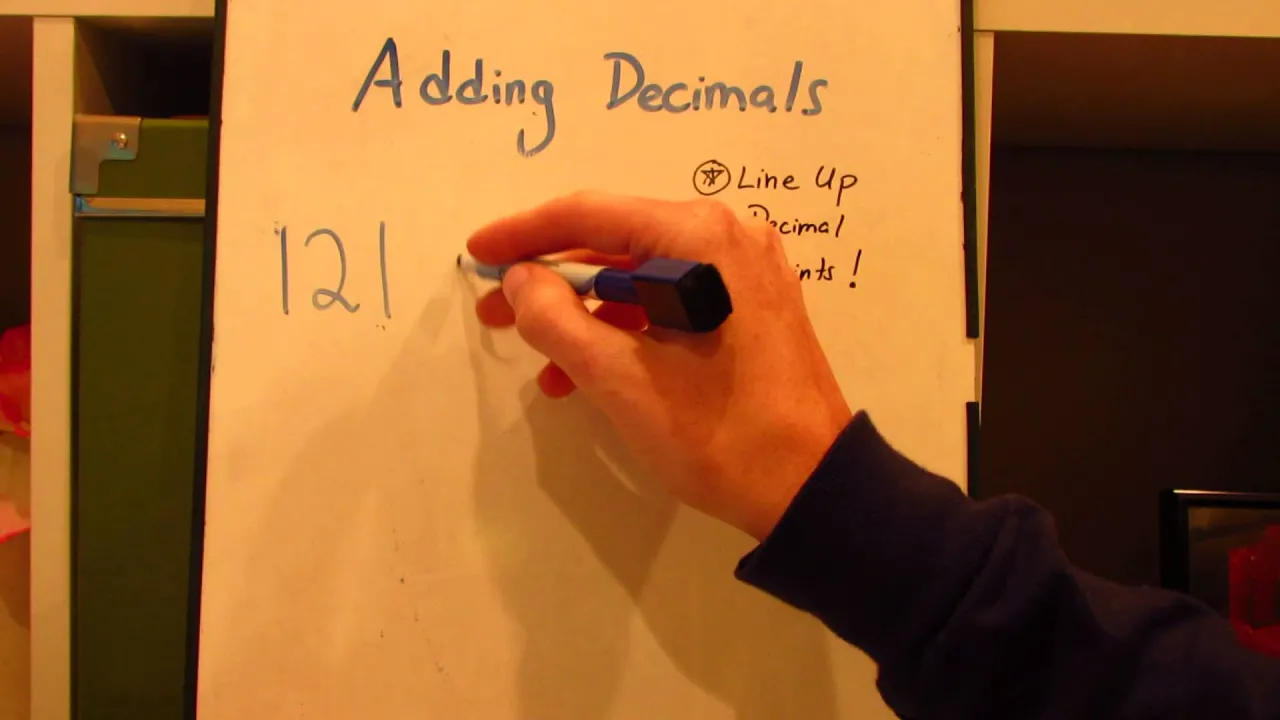 Adding Decimals
Line Up
Decimal
ints!
121